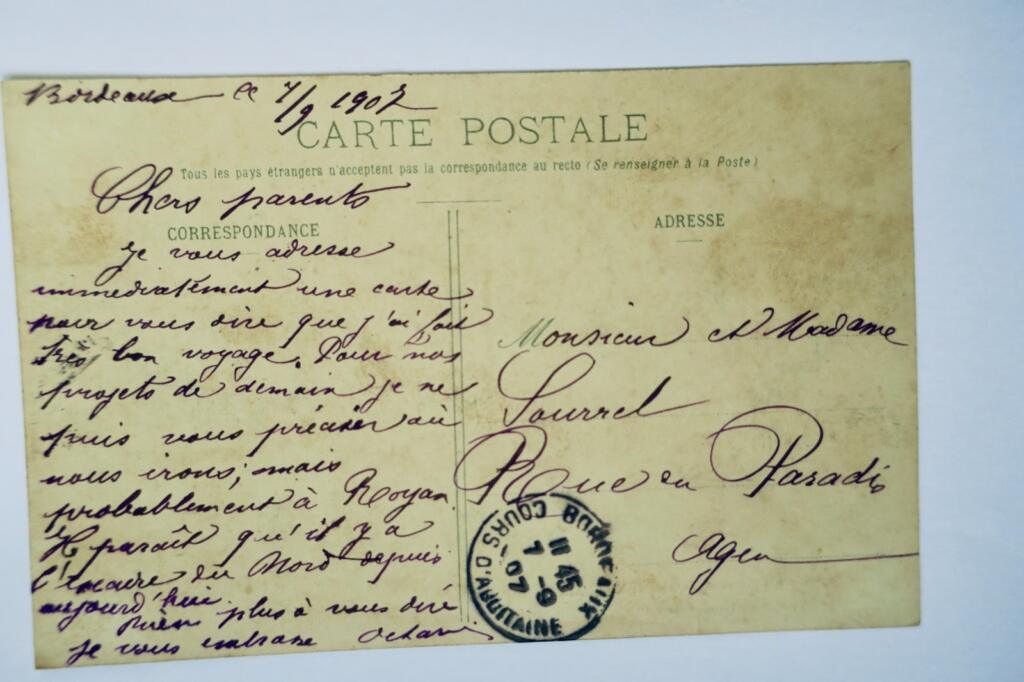 Bordeaux le 7/9 1907
CARTE POSTALE
Tous les pays étrangers n'acceptent pas la correspondance au recto (Se renseigner à la Poste)
Chers parents
CORRESPONDANCE
je vous adresse
immediatement une carte
pour vous dire que j'ai fait
tres bon voyage. Pour nos
projets de demain je ne
puis vous préciser où
nous irons; mais
probablement à Royan
Il paraît qu'il y a
du Nord depuis
aujourd'hui
Rien plus à vous dire
je vous embrasse
ADRESSE
Monsieur et Madame
Sourrel
Rue du Paradis
Agen
BORDEAUX
11 45
7 -9
07
COURS D'AQUITAINE